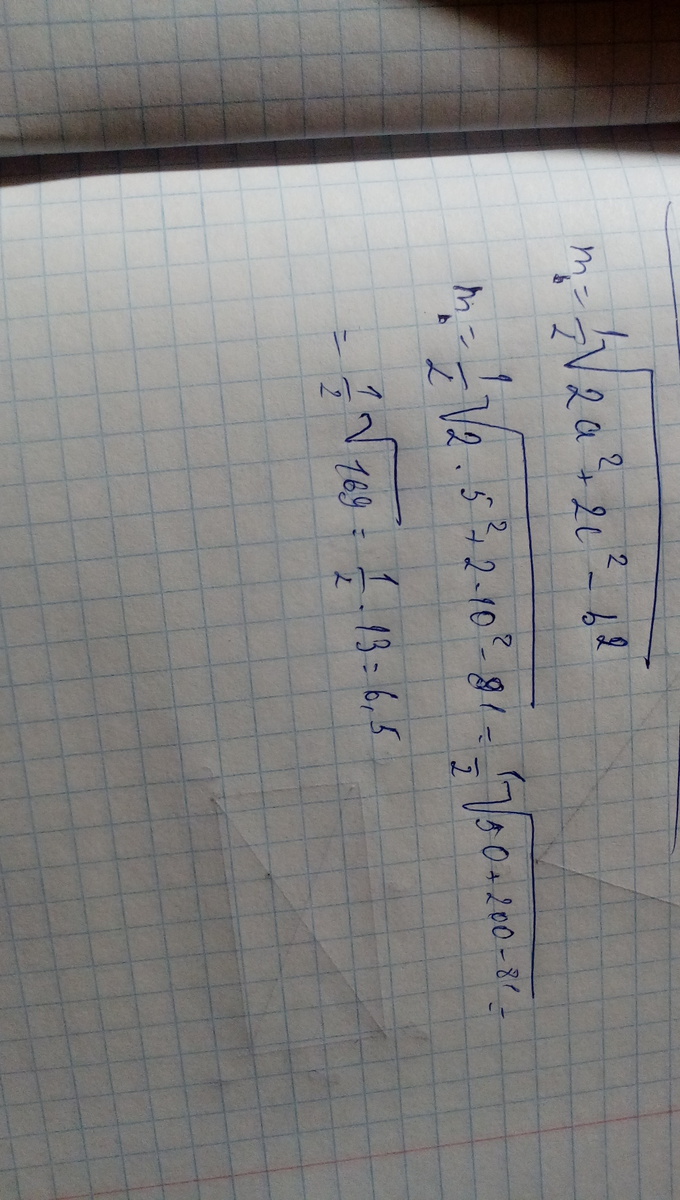 m_b = 1/2 √(2a² + 2c² - b²)
m_b = 1/2 √(2 · 5² + 2 · 10² - 81) = 1/2 √(50 + 200 - 81) =
= 1/2 √169 = 1/2 · 13 = 6,5